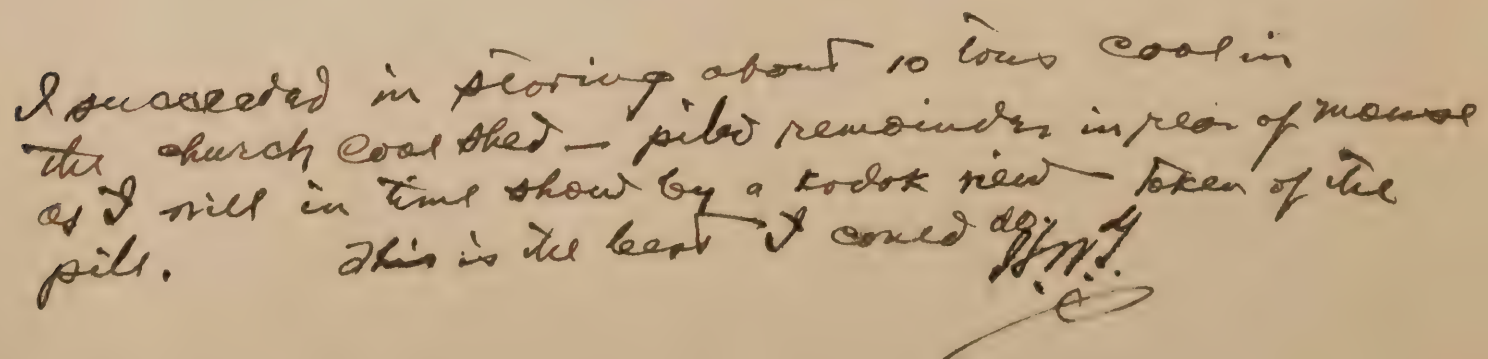 I succeeded in storing about 10 tons coal in
the church coal shed — piled remainder in rear of manse
as I will in time show by a kodak view — taken of the
pile. This is the best I could do,